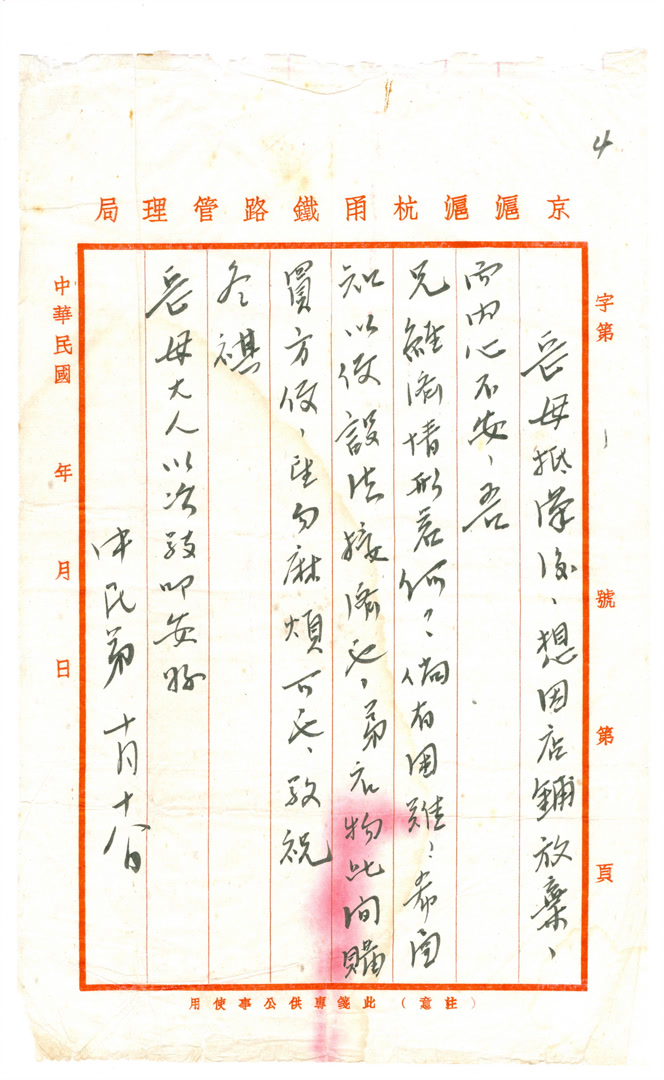 4
京滬滬杭甬鐵路管理局
字第 號 第 頁
岳母抵漢後、想因店鋪放棄、
而內心不安、吾
兄經濟情形若何？倘有困難：希函
知以便設法接濟也、弟衣物此間購
買方便、望勿麻煩可也、敬祝
冬祺
岳母大人以次敬叩安好
弟 十月十八日
中華民國 年 月 日
（注意）此箋專供公事使用